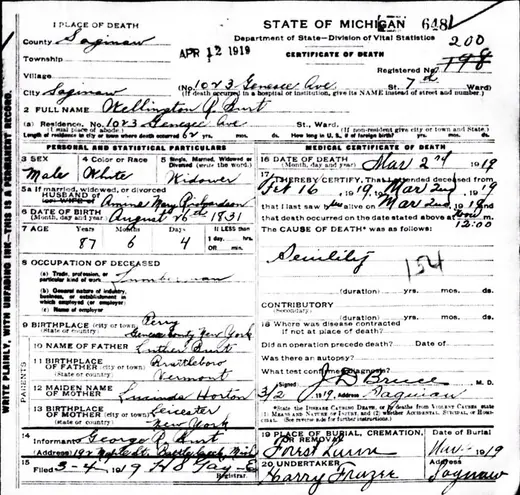 1 PLACE OF DEATH
County Saginaw
Township
Village
City Saginaw
APR 12 1919
STATE OF MICHIGAN 6481
Department of State—Division of Vital Statistics
CERTIFICATE OF DEATH
200
Registered No. 198
(No. 1023 Genesee Ave St., 7th Ward)
(If death occurred in a hospital or institution, give its NAME instead of street and number.)
2 FULL NAME Wellington R Burt
(a) Residence. No. 1023 Genesee Ave St., Ward.
(Usual place of abode) (If non-resident give city or town and State)
Length of residence in city or town where death occurred 62 yrs. mos. ds. How long in U. S., if of foreign birth? yrs. mos. ds.
PERSONAL AND STATISTICAL PARTICULARS
3 SEX
Male
4 Color or Race
White
5 Single, Married, Widowed or Divorced (write the word)
Widower
5a If married, widowed, or divorced
HUSBAND OF
(or) WIFE OF
Amine Mary Richardson
6 DATE OF BIRTH
(Month, day and year)
August 26th 1831
7 AGE
87 6 4
If LESS than
1 day, hrs.
OR min.
8 OCCUPATION OF DECEASED
(a) Trade, profession, or
particular kind of work Lumberman
(b) General nature of industry,
business, or establishment in
which employed (or employer)
(c) Name of employer
9 BIRTHPLACE (city or town) Perry
(State or country) Genesee County New York
PARENTS
10 NAME OF FATHER Luther Burt
11 BIRTHPLACE OF FATHER (city or town) Brattleboro
(State or country) Vermont
12 MAIDEN NAME OF MOTHER Lucinda Horton
13 BIRTHPLACE OF MOTHER (city or town) Leicester
(State or country) New York
14 Informant George R Burt
(Address) 192 Maple St. Battle Creek, Mich
15 Filed 3-4, 1919 H S Gay
Registrar.
MEDICAL CERTIFICATE OF DEATH
16 DATE OF DEATH
(Month, day and year) Mar 2nd 1919
17 I HEREBY CERTIFY, That I attended deceased from
Feb 16, 1919, Mar 2nd, 1919
that I last saw alive on Mar 2nd, 1919
and that death occurred on the date stated above at Noon 12:00
The CAUSE OF DEATH* was as follows:
Senility
154
(duration) yrs. mos. ds.
CONTRIBUTORY
(Secondary)
(duration) yrs. mos. ds.
18 Where was disease contracted
if not at place of death?
Did an operation precede death? Date of
Was there an autopsy?
What test confirmed diagnosis?
Signed J D Bruce M. D.
3/2, 1919. Address Saginaw
*State the Disease Causing Death, or in deaths from Violent Causes state (1) Means and Nature of Injury, and (2) whether Accidental, Suicidal, or Homicidal.
19 PLACE OF BURIAL, CREMATION, OR REMOVAL
Forest Lawn
Date of Burial
Mar 1919
20 UNDERTAKER
Harry Frazer
Address
Saginaw
WRITE PLAINLY, WITH UNFADING INK—THIS IS A PERMANENT RECORD.